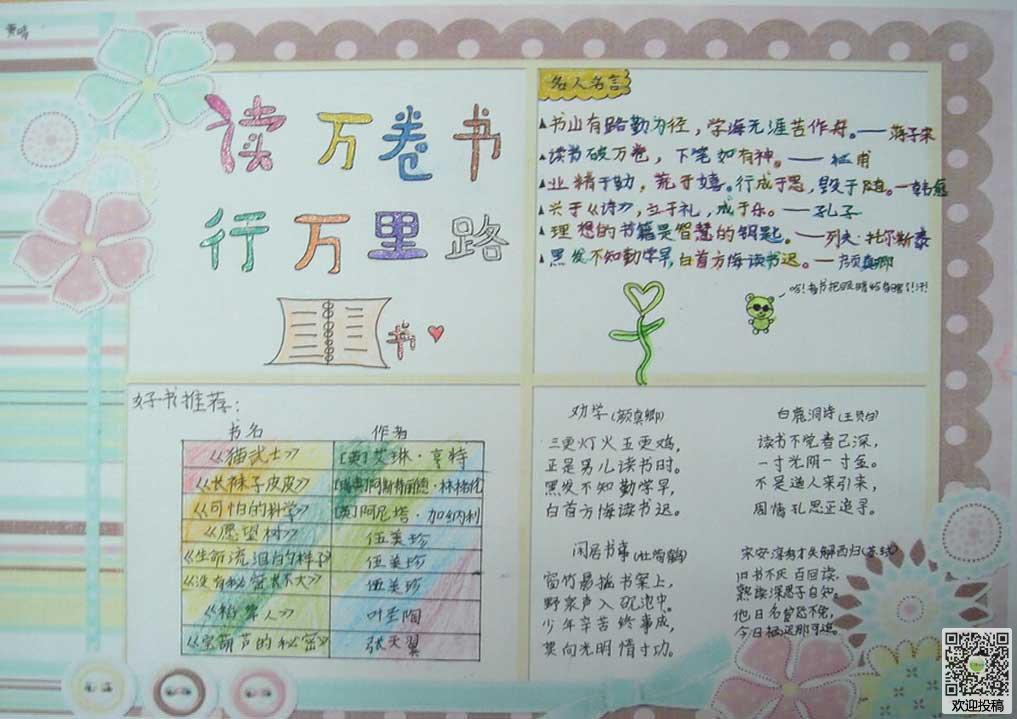 读万卷书
行万里路
书
名人名言
书山有路勤为径，学海无涯苦作舟。——
读书破万卷，下笔如有神。——杜甫
业精于勤，荒于嬉。行成于思，毁于随。—韩愈
兴于《诗》，立于礼，成于乐。——孔子
理想的书籍是智慧的钥匙。——列夫·托尔斯泰
黑发不知勤学早，白首方悔读书迟。—颜真卿
好书推荐：
书名 作者
《猫武士》 [英]艾琳·亨特
《长袜子皮皮》 [瑞典]阿斯特丽德·林格伦
《可怕的科学》 [英]阿尼塔·加纳利
《愿望树》 伍美珍
《生命流泪的样子》 伍美珍
《没有秘密长不大》 伍美珍
《稻草人》 叶圣陶
《宝葫芦的秘密》 张天翼
劝学(颜真卿)
三更灯火五更鸡，
正是男儿读书时。
黑发不知勤学早，
白首方悔读书迟。
白鹿洞诗(王贞白)
读书不觉春已深，
一寸光阴一寸金。
不是道人来引笑，
周情孔思正追寻。
闲居书事(杜荀鹤)
窗竹影摇书案上，
野泉声入砚池中。
少年辛苦终事成，
莫向光明惰寸功。
旧书不厌百回读，
熟读深思子自知。
他日名宦恐不免，
今日栖迟那可追。
欢迎投稿